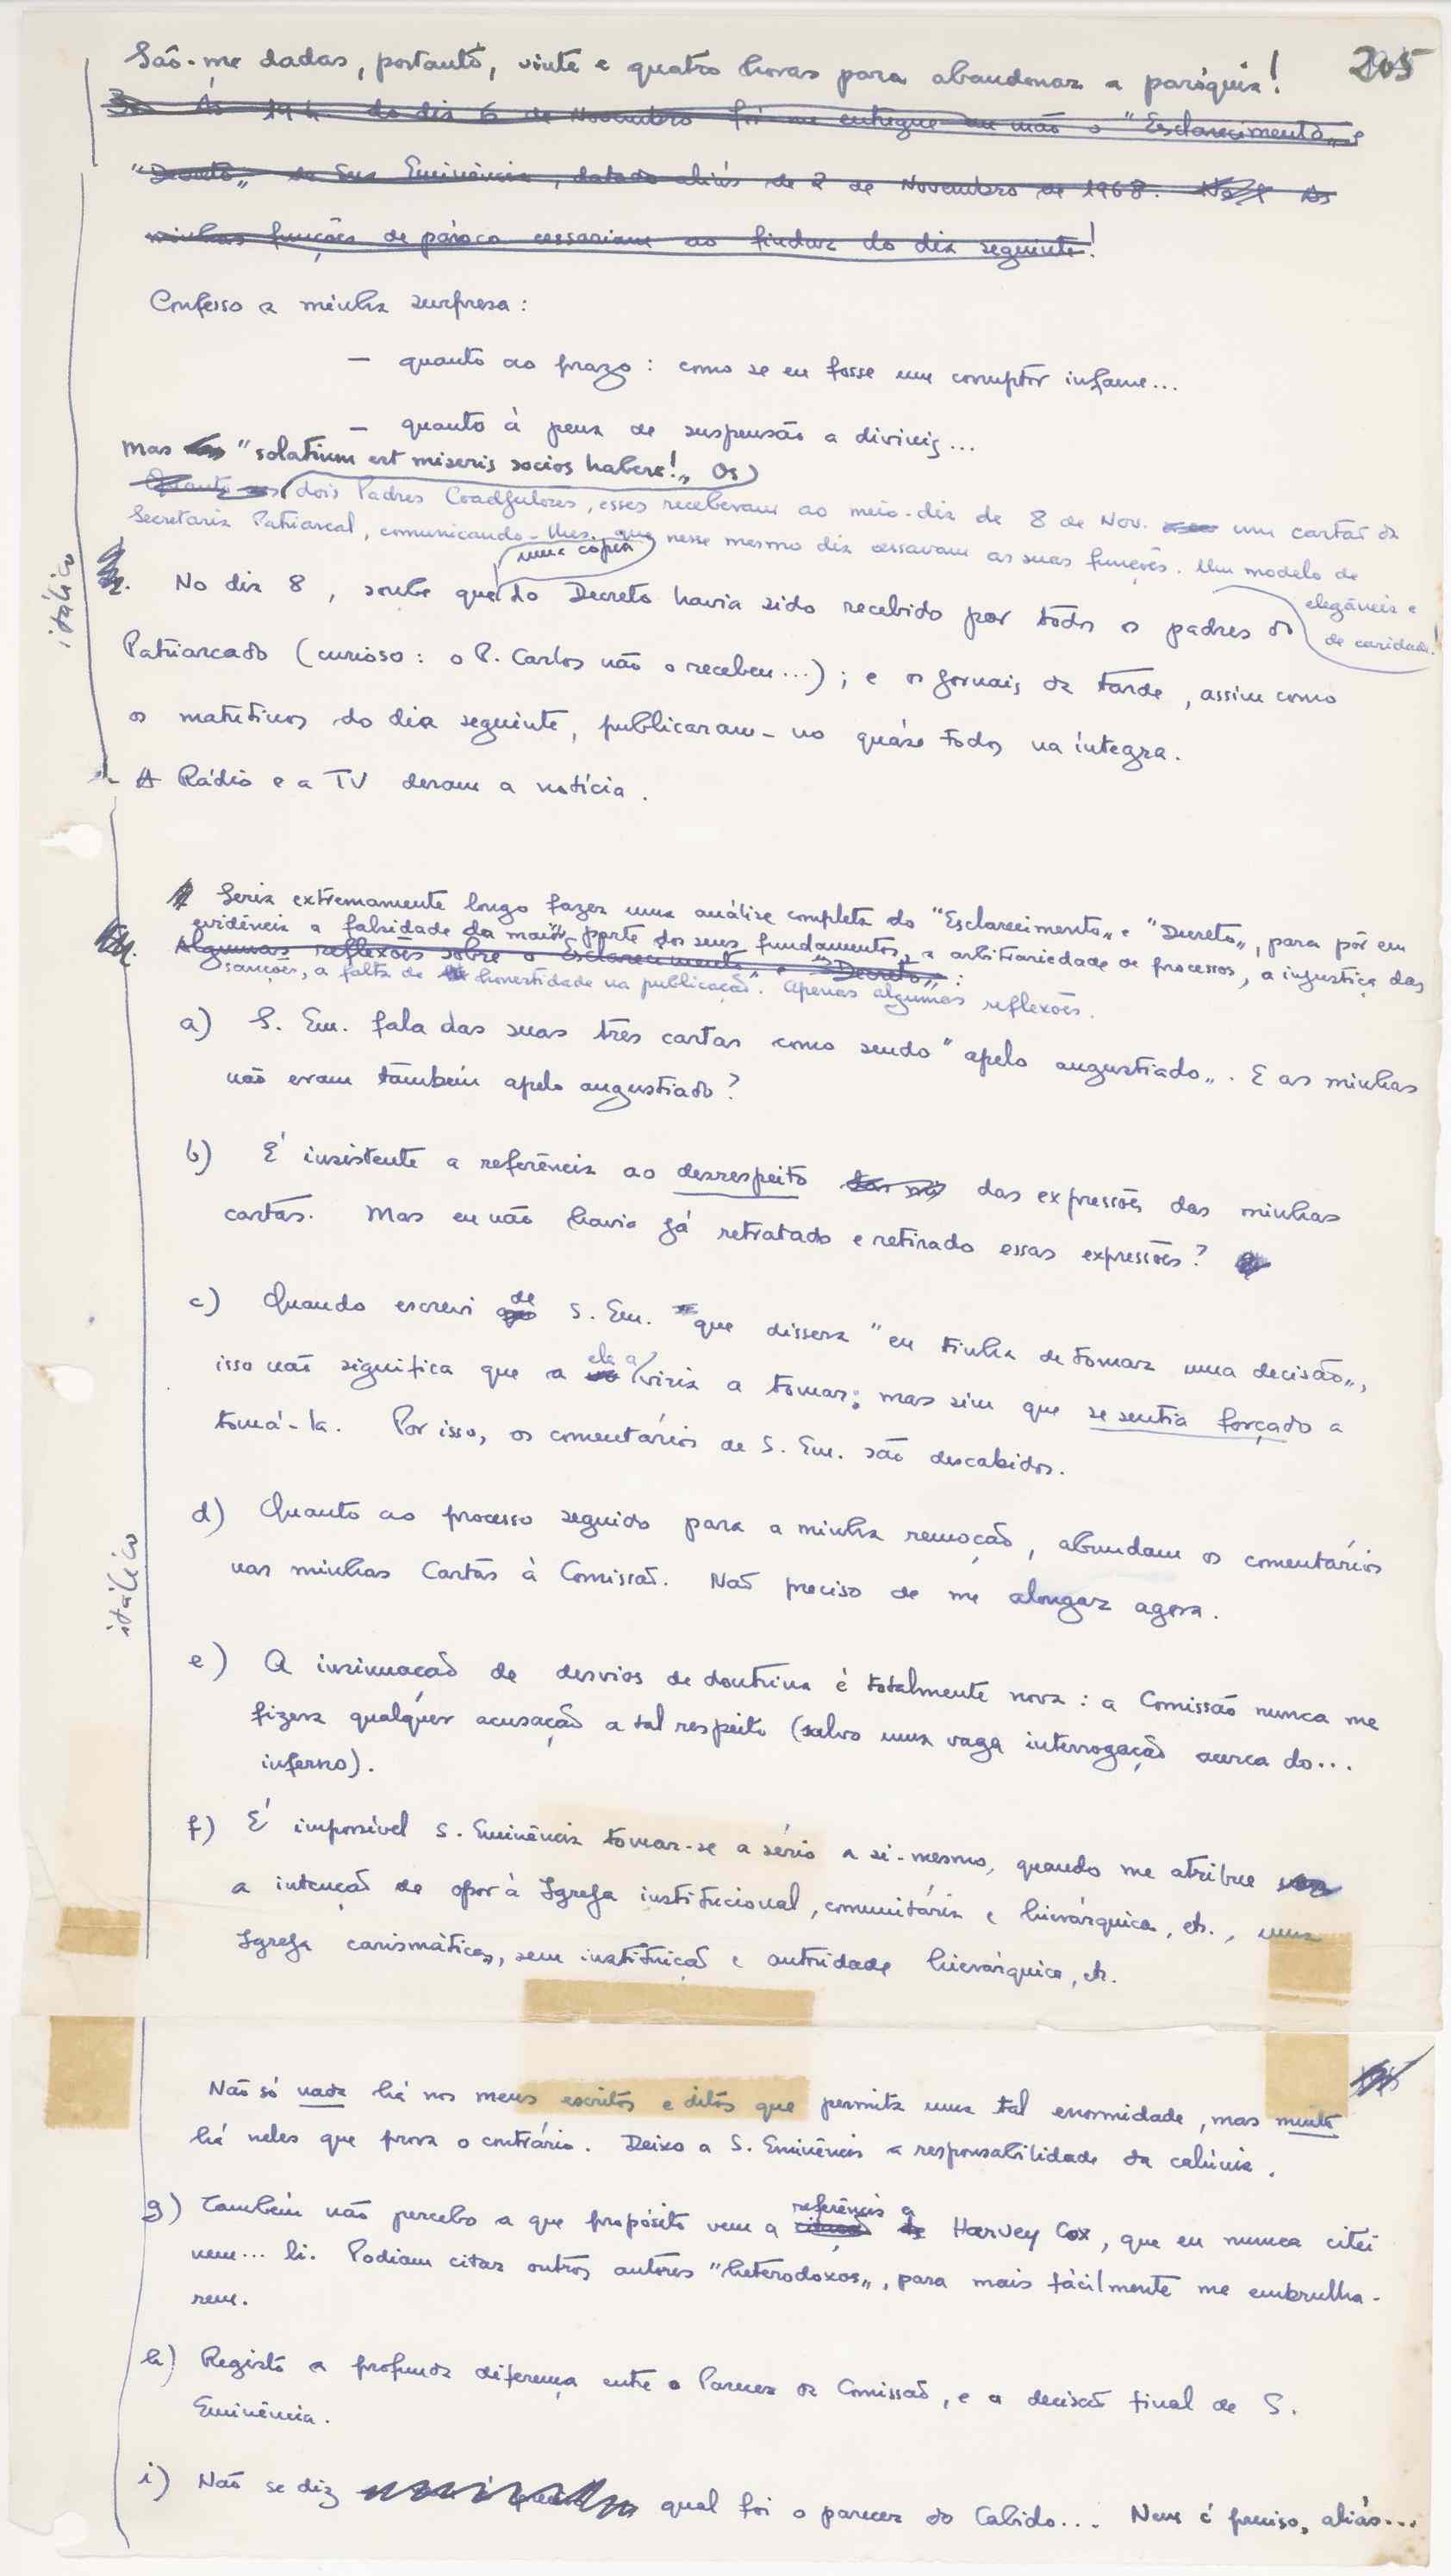 205
São-me dadas, portanto, vinte e quatro horas para abandonar a paróquia!
3. Às 19 h. do dia 6 de Novembro foi-me entregue em mão o "Esclarecimento„ e
"Decreto„ de Sua Eminência, datado aliás de 2 de Novembro de 1968. As
minhas funções de pároco cessariam ao findar do dia seguinte!
Confesso a minha surpresa:
– quanto ao prazo: como se eu fosse um corruptor infame...
– quanto à pena de suspensão a divinis...
Mas "solatium est miseris socios habere!„ Os
Quanto aos dois Padres Coadjutores, esses receberam ao meio-dia de 8 de Nov. uma carta da
Secretaria Patriarcal, comunicando-lhes que nesse mesmo dia cessavam as suas funções. Um modelo de
elegância e
de caridade!
itálico
uma cópia
No dia 8, soube que do Decreto havia sido recebido por todos os padres do
Patriarcado (curioso: o P. Carlos não o recebeu...); e os jornais da tarde, assim como
os matutinos do dia seguinte, publicaram-no quáse todos na íntegra.
A Rádio e a TV deram a notícia.
Seria extremamente longo fazer uma análise completa do "Esclarecimento„ e "Decreto„, para pôr em
evidência a falsidade da maior parte dos seus fundamentos, a arbitrariedade de processos, a injustiça das
Algumas reflexões sobre o Esclarecimento e "Decreto„:
sanções, a falta de honestidade na publicação. Apenas algumas reflexões.
a) S. Em. fala das suas três cartas como sendo "apelo angustiado„. E as minhas
não eram também apelo angustiado?
b) É insistente a referência ao desrespeito das expressões das minhas
cartas. Mas eu não havia já retratado e retirado essas expressões?
c) Quando escrevi de S. Em. que dissera "eu tinha de tomar uma decisão„,
isso não significa que a ela a viria a tomar; mas sim que se sentia forçado a
tomá-la. Por isso, os comentários de S. Em. são descabidos.
itálico
d) Quanto ao processo seguido para a minha remoção, abundam os comentários
nas minhas Cartas à Comissão. Não preciso de me alongar agora.
e) A insinuação de desvios de doutrina é totalmente nova: a Comissão nunca me
fizera qualquer acusação a tal respeito (salvo uma vaga interrogação acerca do...
inferno).
f) É impossível S. Eminência tomar-se a sério a si-mesmo, quando me atribue
a intenção de opor à Igreja institucional, comunitária e hierárquica, etc., uma
Igreja carismática, sem instituição e autoridade hierárquica, etc.
Não só nada há nos meus escritos e ditos que permita uma tal enormidade, mas muito
há neles que prova o contrário. Deixo a S. Eminência a responsabilidade da calúnia.
g) Também não percebo a que propósito vem a referência a Harvey Cox, que eu nunca citei
nem... li. Podiam citar outros autores "heterodoxos„, para mais fàcilmente me embrulha-
rem.
h) Registo a profunda diferença entre o Parecer da Comissão, e a decisão final de S.
Eminência.
i) Não se diz qual foi o parecer do Cabido... Nem é preciso, aliás...